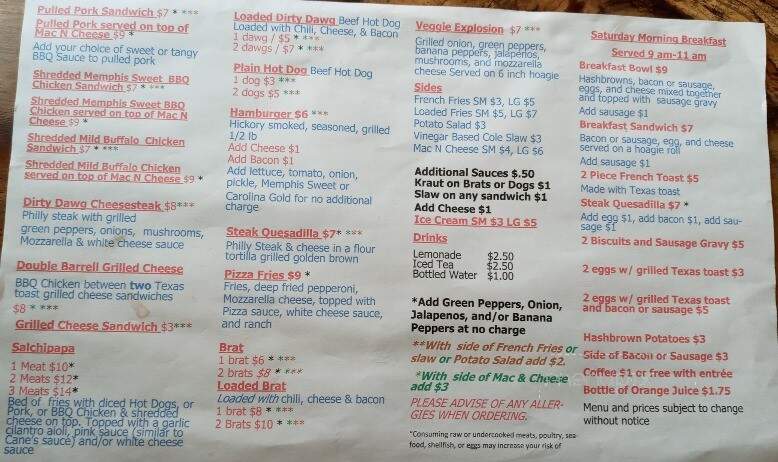 Pulled Pork Sandwich $7 * ***
Pulled Pork served on top of
Mac N Cheese $9 *
Add your choice of sweet or tangy
BBQ Sauce to pulled pork
Shredded Memphis Sweet BBQ
Chicken Sandwich $7 * ***
Shredded Memphis Sweet BBQ
Chicken served on top of Mac N
Cheese $9 *
Shredded Mild Buffalo Chicken
Sandwich $7 * ***
Shredded Mild Buffalo Chicken
served on top of Mac N Cheese $9 *
Dirty Dawg Cheesesteak $8***
Philly steak with grilled
green peppers, onions, mushrooms,
Mozzarella & white cheese sauce
Double Barrell Grilled Cheese
BBQ Chicken between two Texas
toast grilled cheese sandwiches
$8 * ***
Grilled Cheese Sandwich $3***
Salchipapa
1 Meat $10*
2 Meats $12*
3 Meats $14*
Bed of fries with diced Hot Dogs, or
Pork, or BBQ Chicken & shredded
cheese on top. Topped with a garlic
cilantro aioli, pink sauce (similar to
Cane's sauce) and/or white cheese
sauce
Loaded Dirty Dawg Beef Hot Dog
Loaded with Chili, Cheese, & Bacon
1 dawg / $5 * ***
2 dawgs / $7 * ***
Plain Hot Dog Beef Hot Dog
1 dog $3 ***
2 dogs $5 ***
Hamburger $6 ***
Hickory smoked, seasoned, grilled
1/2 lb
Add Cheese $1
Add Bacon $1
Add lettuce, tomato, onion,
pickle, Memphis Sweet or
Carolina Gold for no additional
charge
Steak Quesadilla $7* ***
Philly Steak & cheese in a flour
tortilla grilled golden brown
Pizza Fries $9 *
Fries, deep fried pepperoni,
Mozzarella cheese, topped with
Pizza sauce, white cheese sauce,
and ranch
Brat
1 brat $6 * ***
2 brats $8 * ***
Loaded Brat
Loaded with chili, cheese & bacon
1 brat $8 * ***
2 Brats $10 * ***
Veggie Explosion $7 ***
Grilled onion, green peppers,
banana peppers, jalapenos,
mushrooms, and mozzarella
cheese Served on 6 inch hoagie
Sides
French Fries SM $3, LG $5
Loaded Fries SM $5, LG $7
Potato Salad $3
Vinegar Based Cole Slaw $3
Mac N Cheese SM $4, LG $6
Additional Sauces $.50
Kraut on Brats or Dogs $1
Slaw on any sandwich $1
Add Cheese $1
Ice Cream SM $3 LG $5
Drinks
Lemonade $2.50
Iced Tea $2.50
Bottled Water $1.00
*Add Green Peppers, Onion,
Jalapenos, and/or Banana
Peppers at no charge
**With side of French Fries or
slaw or Potato Salad add $2.
*With side of Mac & Cheese
add $3
PLEASE ADVISE OF ANY ALLER-
GIES WHEN ORDERING.
*Consuming raw or undercooked meats, poultry, sea-
food, shellfish, or eggs may increase your risk of
Saturday Morning Breakfast
Served 9 am-11 am
Breakfast Bowl $9
Hashbrowns, bacon or sausage,
eggs, and cheese mixed together
and topped with sausage gravy
Add sausage $1
Breakfast Sandwich $7
Bacon or sausage, egg, and cheese
served on a hoagie roll
Add sausage $1
2 Piece French Toast $5
Made with Texas toast
Steak Quesadilla $7 *
Add egg $1, add bacon $1, add sau-
sage $1
2 Biscuits and Sausage Gravy $5
2 eggs w/ grilled Texas toast $3
2 eggs w/ grilled Texas toast
and bacon or sausage $5
Hashbrown Potatoes $3
Side of Bacon or Sausage $3
Coffee $1 or free with entrée
Bottle of Orange Juice $1.75
Menu and prices subject to change
without notice